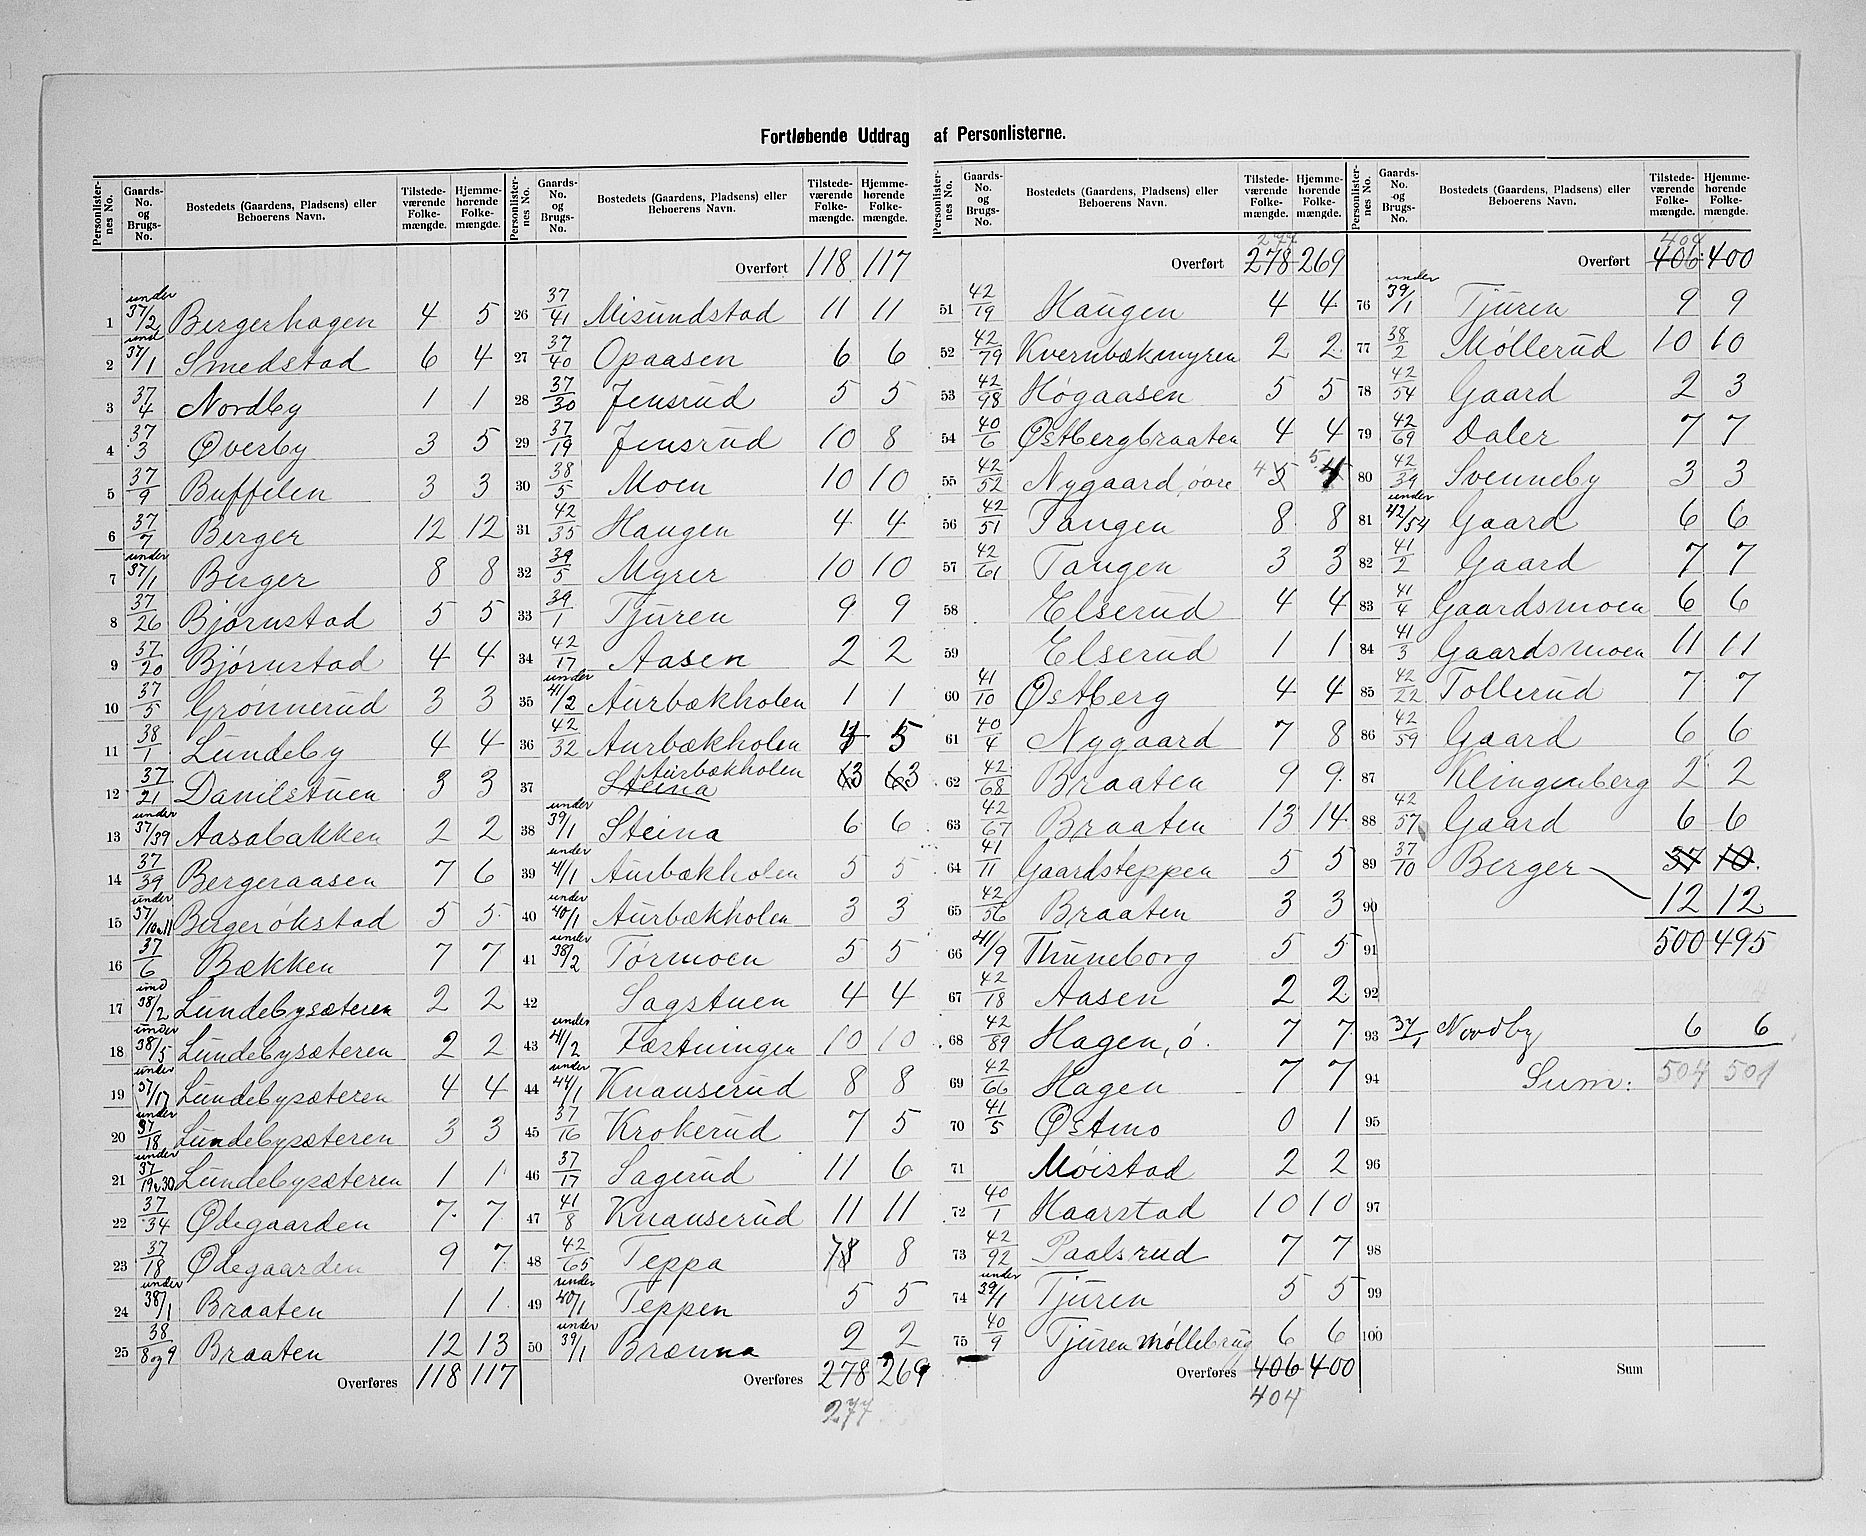 Fortløbende Uddrag af Personlisterne.
Personlister-nes No. Gaards-No. og Brugs-No. Bostedets (Gaardens, Pladsens) eller Beboerens Navn. Tilstede-værende Folke-mængde. Hjemme-hørende Folke-mængde.
1 under 37/2 Bergerhagen 4 5
2 und 37/1 Smedstad 6 4
3 37/4 Nordby 1 1
4 37/3 Øverby 3 5
5 37/9 Buffelen 3 3
6 37/7 Berger 12 12
7 under 37/1 Berger 8 8
8 37/26 Bjørnstad 5 5
9 37/20 Bjørnstad 4 4
10 37/5 Grønnerud 3 3
11 38/1 Lundeby 4 4
12 37/21 Danilstuen 3 3
13 under 37/39 Aasabakken 2 2
14 37/39 Bergeraasen 7 6
15 under 37/10 11 Bergerøkstad 5 5
16 37/6 Bækken 7 7
17 und 38/2 Lundebysæteren 2 2
18 under 38/5 Lundebysæteren 2 2
19 under 37/17 Lundebysæteren 4 4
20 under 37/18 Lundebysæteren 3 3
21 under 37/19 30 Lundebysæteren 1 1
22 37/34 Ødegaarden 7 7
23 37/18 Ødegaarden 9 7
24 under 38/1 Braaten 1 1
25 38/8 og 9 Braaten 12 13
Overføres 118 117
Personlister-nes No. Gaards-No. og Brugs-No. Bostedets (Gaardens, Pladsens) eller Beboerens Navn. Tilstede-værende Folke-mængde. Hjemme-hørende Folke-mængde.
Overført 118 117
26 37/41 Misundstad 11 11
27 37/40 Opaasen 6 6
28 37/30 Jensrud 5 5
29 37/19 Jensrud 10 8
30 38/5 Moen 10 10
31 42/35 Haugen 4 4
32 39/5 Myrer 10 10
33 39/1 Tjuren 9 9
34 42/17 Aasen 2 2
35 under 41/2 Aurbækholen 1 1
36 42/32 Aurbækholen 5
37 Steina Aurbækholen 3 3
38 under 39/1 Steina 6 6
39 under 41/1 Aurbækholen 5 5
40 under 40/1 Aurbækholen 3 3
41 under 38/2 Tørmoen 5 5
42 Sagstuen 4 4
43 under 41/2 Fætningen 10 10
44 under 44/1 Knauserud 8 8
45 37/16 Krokerud 7 5
46 37/17 Sagerud 11 6
47 41/8 Knauserud 11 11
48 42/65 Teppa 7 8 8
49 under 40/1 Teppen 5 5
50 under 39/1 Brænna 2 2
Overføres 278 269
277
Personlister-nes No. Gaards-No. og Brugs-No. Bostedets (Gaardens, Pladsens) eller Beboerens Navn. Tilstede-værende Folke-mængde. Hjemme-hørende Folke-mængde.
277
Overført 278 269
51 42/19 Haugen 4 4
52 42/79 Kvernbækmyren 2 2
53 42/98 Høgaasen 5 5
54 40/6 Østbergbraaten 4 4
55 42/52 Nygaard, øvre 4 5 5 4
56 42/51 Tangen 8 8
57 42/61 Tangen 3 3
58 Elserud 4 4
59 Elserud 1 1
60 41/10 Østberg 4 4
61 40/4 Nygaard 7 8
62 42/68 Braaten 9 9
63 42/67 Braaten 13 14
64 41/11 Gaardsteppen 5 5
65 42/56 Braaten 3 3
66 41/9 Thuneborg 5 5
67 42/18 Aasen 2 2
68 42/89 Hagen, ø. 7 7
69 42/66 Hagen 7 7
70 41/5 Østmo 0 1
71 Møistad 2 2
72 40/1 Haarstad 10 10
73 42/92 Paalsrud 7 7
74 under 39/1 Tjuren 5 5
75 40/9 Tjuren Møllebrug 6 6
Overføres 406 400
404
Personlister-nes No. Gaards-No. og Brugs-No. Bostedets (Gaardens, Pladsens) eller Beboerens Navn. Tilstede-værende Folke-mængde. Hjemme-hørende Folke-mængde.
404
Overført 406 400
76 under 39/1 Tjuren 9 9
77 38/2 Møllerud 10 10
78 42/54 Gaard 2 3
79 42/69 Daler 7 7
80 42/39 Svenneby 3 3
81 under 42/54 Gaard 6 6
82 41/2 Gaard 7 7
83 41/4 Gaardsmoen 6 6
84 41/3 Gaardsmoen 11 11
85 42/22 Tollerud 7 7
86 42/59 Gaard 6 6
87 Klingenberg 2 2
88 42/57 Gaard 6 6
89 37/10 Berger 37 10
90 12 12
91 500 495
92
93 37/1 Nordby 6 6
94 Sum: 504 501
95
96
97
98
99
100
Sum